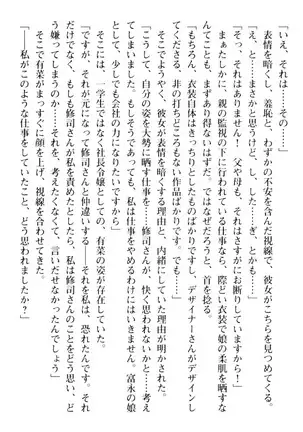 「いえ、それは……その……」
表情を暗くし、羞恥と、わずかの不安を含んだ視線で、彼女がこちらを見つめてくる。
「え、と……まさかと思うけど……し、下着……とか？」
「そ、それはありません！　父や母も、それはさすがにお断りしていますから！」
まぁたしかに、親の監視の下に行われている仕事なら、際どい衣装で娘の柔肌を晒すなんてことも、まずあり得ないはずだ。ではなぜだろうと、首を捻る。
「もちろん、衣装自体はきっちりとしたものばかりですし、デザイナーさんがデザインしてくださる、非の打ちどころもない作品ばかりです。でも……」
そこでようやく、彼女が表情を暗くする理由と、内緒にしていた理由が明かされた。
「こうして、自分の姿を大勢に晒す仕事を……修司さんが、快く思わないかと……考えてしまいました。もしそうであっても、私は仕事をやめるわけにはいきません。富永の娘として、少しでも会社の力になりたいですから」
そこには、一学生ではなく社長令嬢としての、有菜の姿が存在した。
「ですが、それが元になって修司さんと仲違いする――それを、私は、恐れたんです。でも、もしそれで修司さんが私を責めたとしたら、私は修司さんのことをどう思い、どう嫌ってしまうのか……それを、考えたくなくて、言いだせなかったんでしょう」
そこで有菜はまっすぐに顔を上げ、視線を合わせてきた。
「――私がこのような仕事をしていたこと、どう思われましたか？」